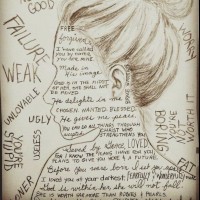 NO
GOOD
FAILURE
WEAK
UNLOVABLE
UGLY
YOU'RE
STUPID
USELESS
HER
FREE
forgiven
I have called
you by name
you are mine.
Made in
His image.
God is in the midst
of her she shall not
be moved
He delights in me
CHOSEN. WANTED. BLESSED
He gives me peace.
You can do all things through
CHRIST WHO
STRENGTHENS YOU
Saved by Grace. LOVED.
FOR I KNOW THE PLANS I HAVE FOR YOU
PLANS TO GIVE YOU HOPE & A FUTURE
Before you were born I set you apart
I loved you at your darkest.
fearfully & wonderfully
God is within her she will not fall.
SHE IS WORTH FAR MORE THAN RUBIES & PEARLS
WORTH
BORING
FAT